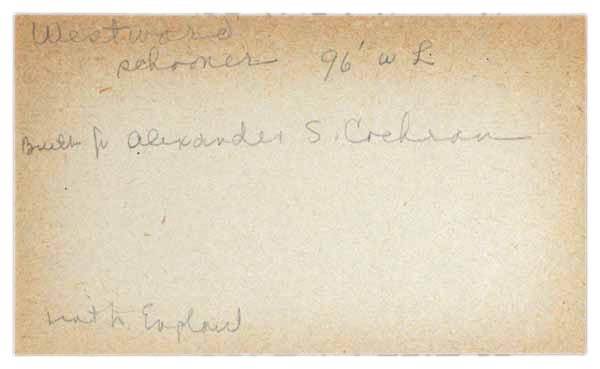 Westward
schooner 96' W L
Built for Alexander S. Cochran
England